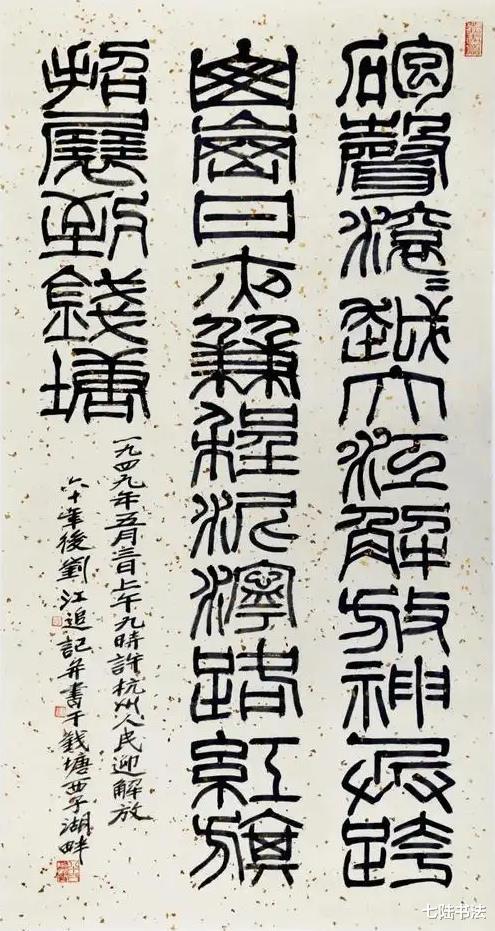 聲滾=越大江解放神兵跨
岡日夜兼程泥濘路紅旗
招展到錢塘
一九四九年五月三日上午九時許杭州人民迎解放
六十年後劉江追記并書于錢塘西子湖畔
七陆书法